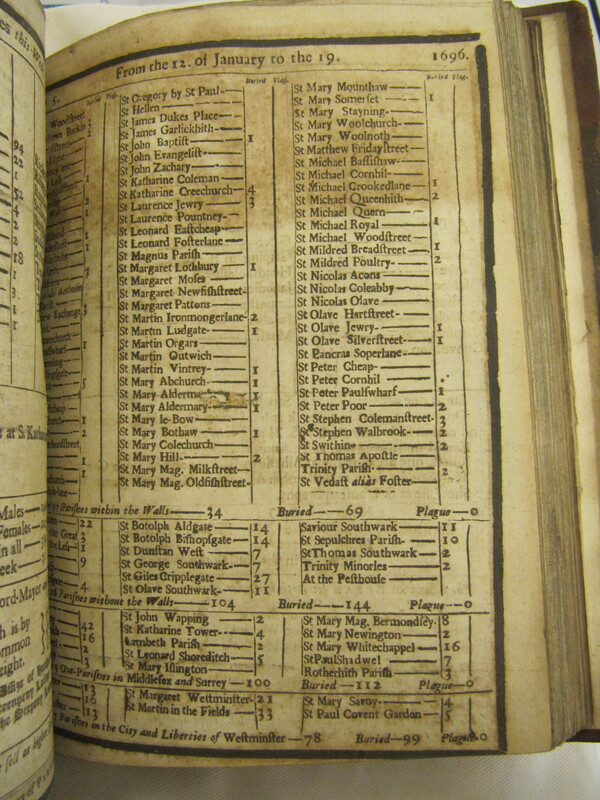 From the 12. of January to the 19. 1696.
Buried Plag.
St Gregory by St Paul
St Hellen
St James Dukes Place
St James Garlickhith
St John Baptiſt 1
St John Evangeliſt
St John Zachary
St Katharine Coleman
St Katharine Creechurch 4
St Laurence Jewry 3
St Laurence Pountney
St Leonard Eaſtcheap
St Leonard Foſterlane
St Magnus Pariſh
St Margaret Lothbury 1
St Margaret Moſes
St Margaret Newfiſhſtreet
St Margaret Pattons
St Martin Ironmongerlane 2
St Martin Ludgate 1
St Martin Orgars
St Martin Outwich
St Martin Vintrey 1
St Mary Abchurch 1
St Mary Alderma 1
St Mary Aldermary 1
St Mary le-Bow
St Mary Bothaw 1
St Mary Colechurch
St Mary Hill 2
St Mary Mag. Milkſtreet
St Mary Mag. Oldfiſhſtreet
Buried Plag.
St Mary Mounthaw
St Mary Somerſet 1
St Mary Stayning
St Mary Woolchurch
St Mary Woolnoth
St Matthew Fridayſtreet
St Michael Baſſiſhaw
St Michael Cornhil
St Michael Crookedlane 1
St Michael Queenhith 2
St Michael Quern
St Michael Royal 1
St Michael Woodſtreet
St Mildred Breadſtreet 1
St Mildred Poultry 2
St Nicolas Acons
St Nicolas Coleabby
St Nicolas Olave
St Olave Hartſtreet
St Olave Jewry 1
St Olave Silverſtreet 1
St Pancras Soperlane
St Peter Cheap
St Peter Cornhil
St Peter Paulſwharf 1
St Peter Poor 2
St Stephen Colemanſtreet 3
St Stephen Walbrook 2
St Swithin 2
St Thomas Apoſtle
Trinity Pariſh 2
St Vedaſt alias Foſter
97 Pariſhes within the Walls 34 Buried 69 Plague 0
St Botolph Aldgate 14
St Botolph Biſhopſgate 14
St Dunſtan Weſt 7
St George Southwark 7
St Giles Cripplegate 27
St Olave Southwark 11
Saviour Southwark 11
St Sepulchres Pariſh 10
St Thomas Southwark 2
Trinity Minories 2
At the Peſthouſe
16 Pariſhes without the Walls 104 Buried 144 Plague 0
St John Wapping 2
St Katharine Tower 4
Lambeth Pariſh 2
St Leonard Shoreditch 5
St Mary Iſlington
St Mary Mag. Bermondſey 8
St Mary Newington 2
St Mary Whitechappel 16
St Paul Shadwel 7
Rotherhith Pariſh 3
Out-Pariſhes in Middleſex and Surrey 100 Buried 112 Plague 0
St Margaret Weſtminſter 21
St Martin in the Fields 33
St Mary Savoy 4
St Paul Covent Garden 5
7 Pariſhes in the City and Liberties of Weſtminſter 78 Buried 99 Plague 0